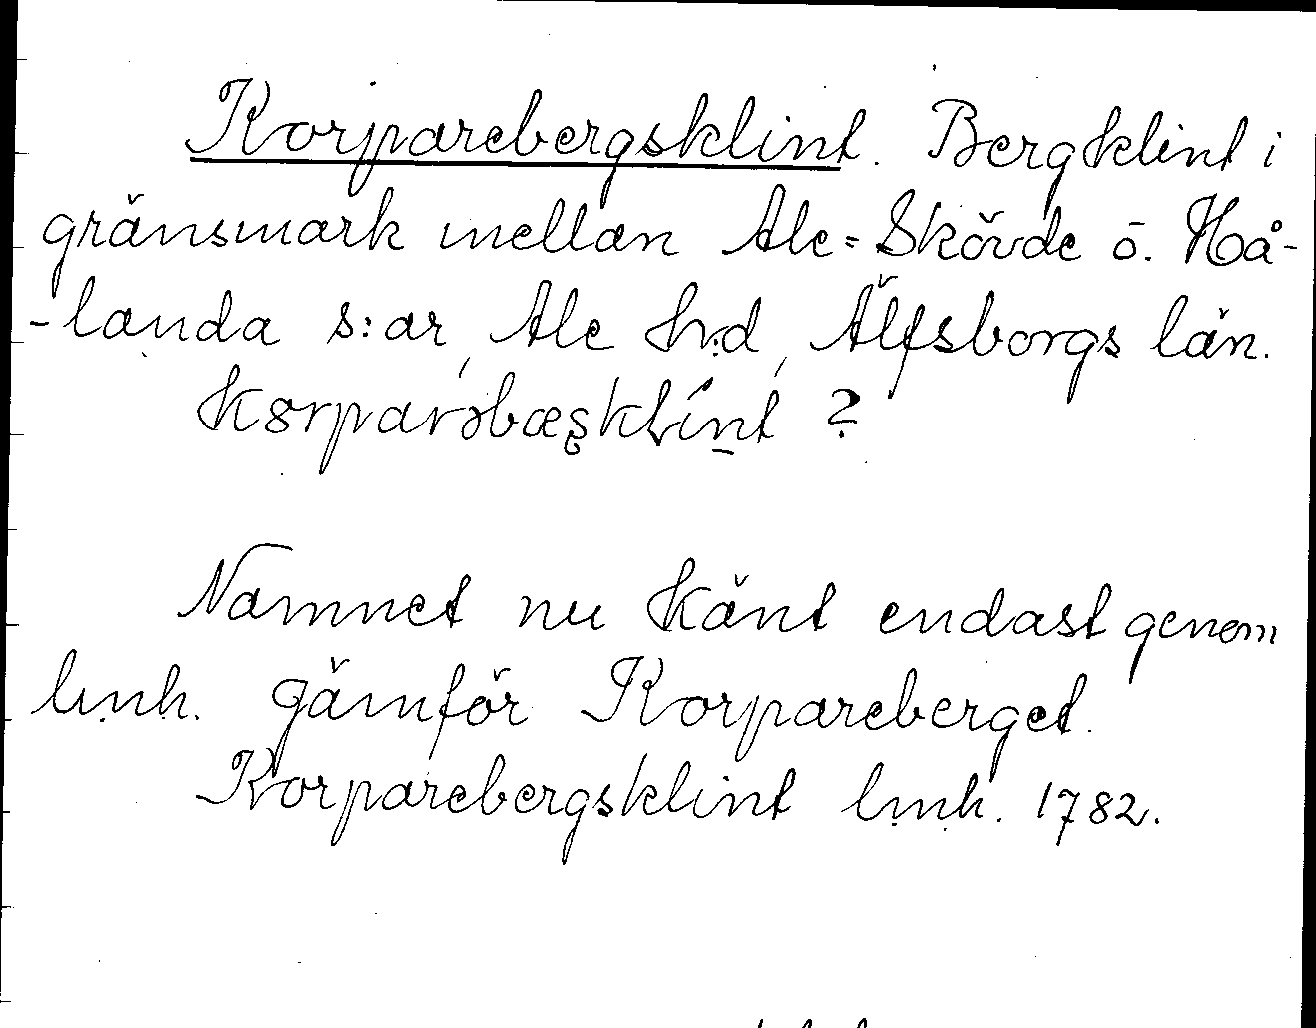 Korparebergsklint. Bergklint i
gränsmark mellan Ale=Skövde o. Hå-
-landa s:ar, Ale hrd, Älfsborgs län.
Namnet nu känt endast genom
lmh. Jämför Korpareberget.
Korparebergsklint lmh. 1782.